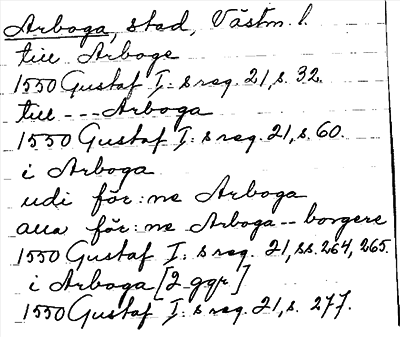 Arboga, stad, Västm. l.
till Arboge
1550 Gustaf I: s reg. 21, s. 32.
till --- Arboga
1550 Gustaf I: s reg. 21, s. 60.
i Arboga
udi för:ne Arboga
alla för:ne Arboga -- borgere
1550 Gustaf I: s reg. 21, ss. 264, 265.
i Arboga [2 ggr]
1550 Gustaf I: s reg. 21, s. 277.